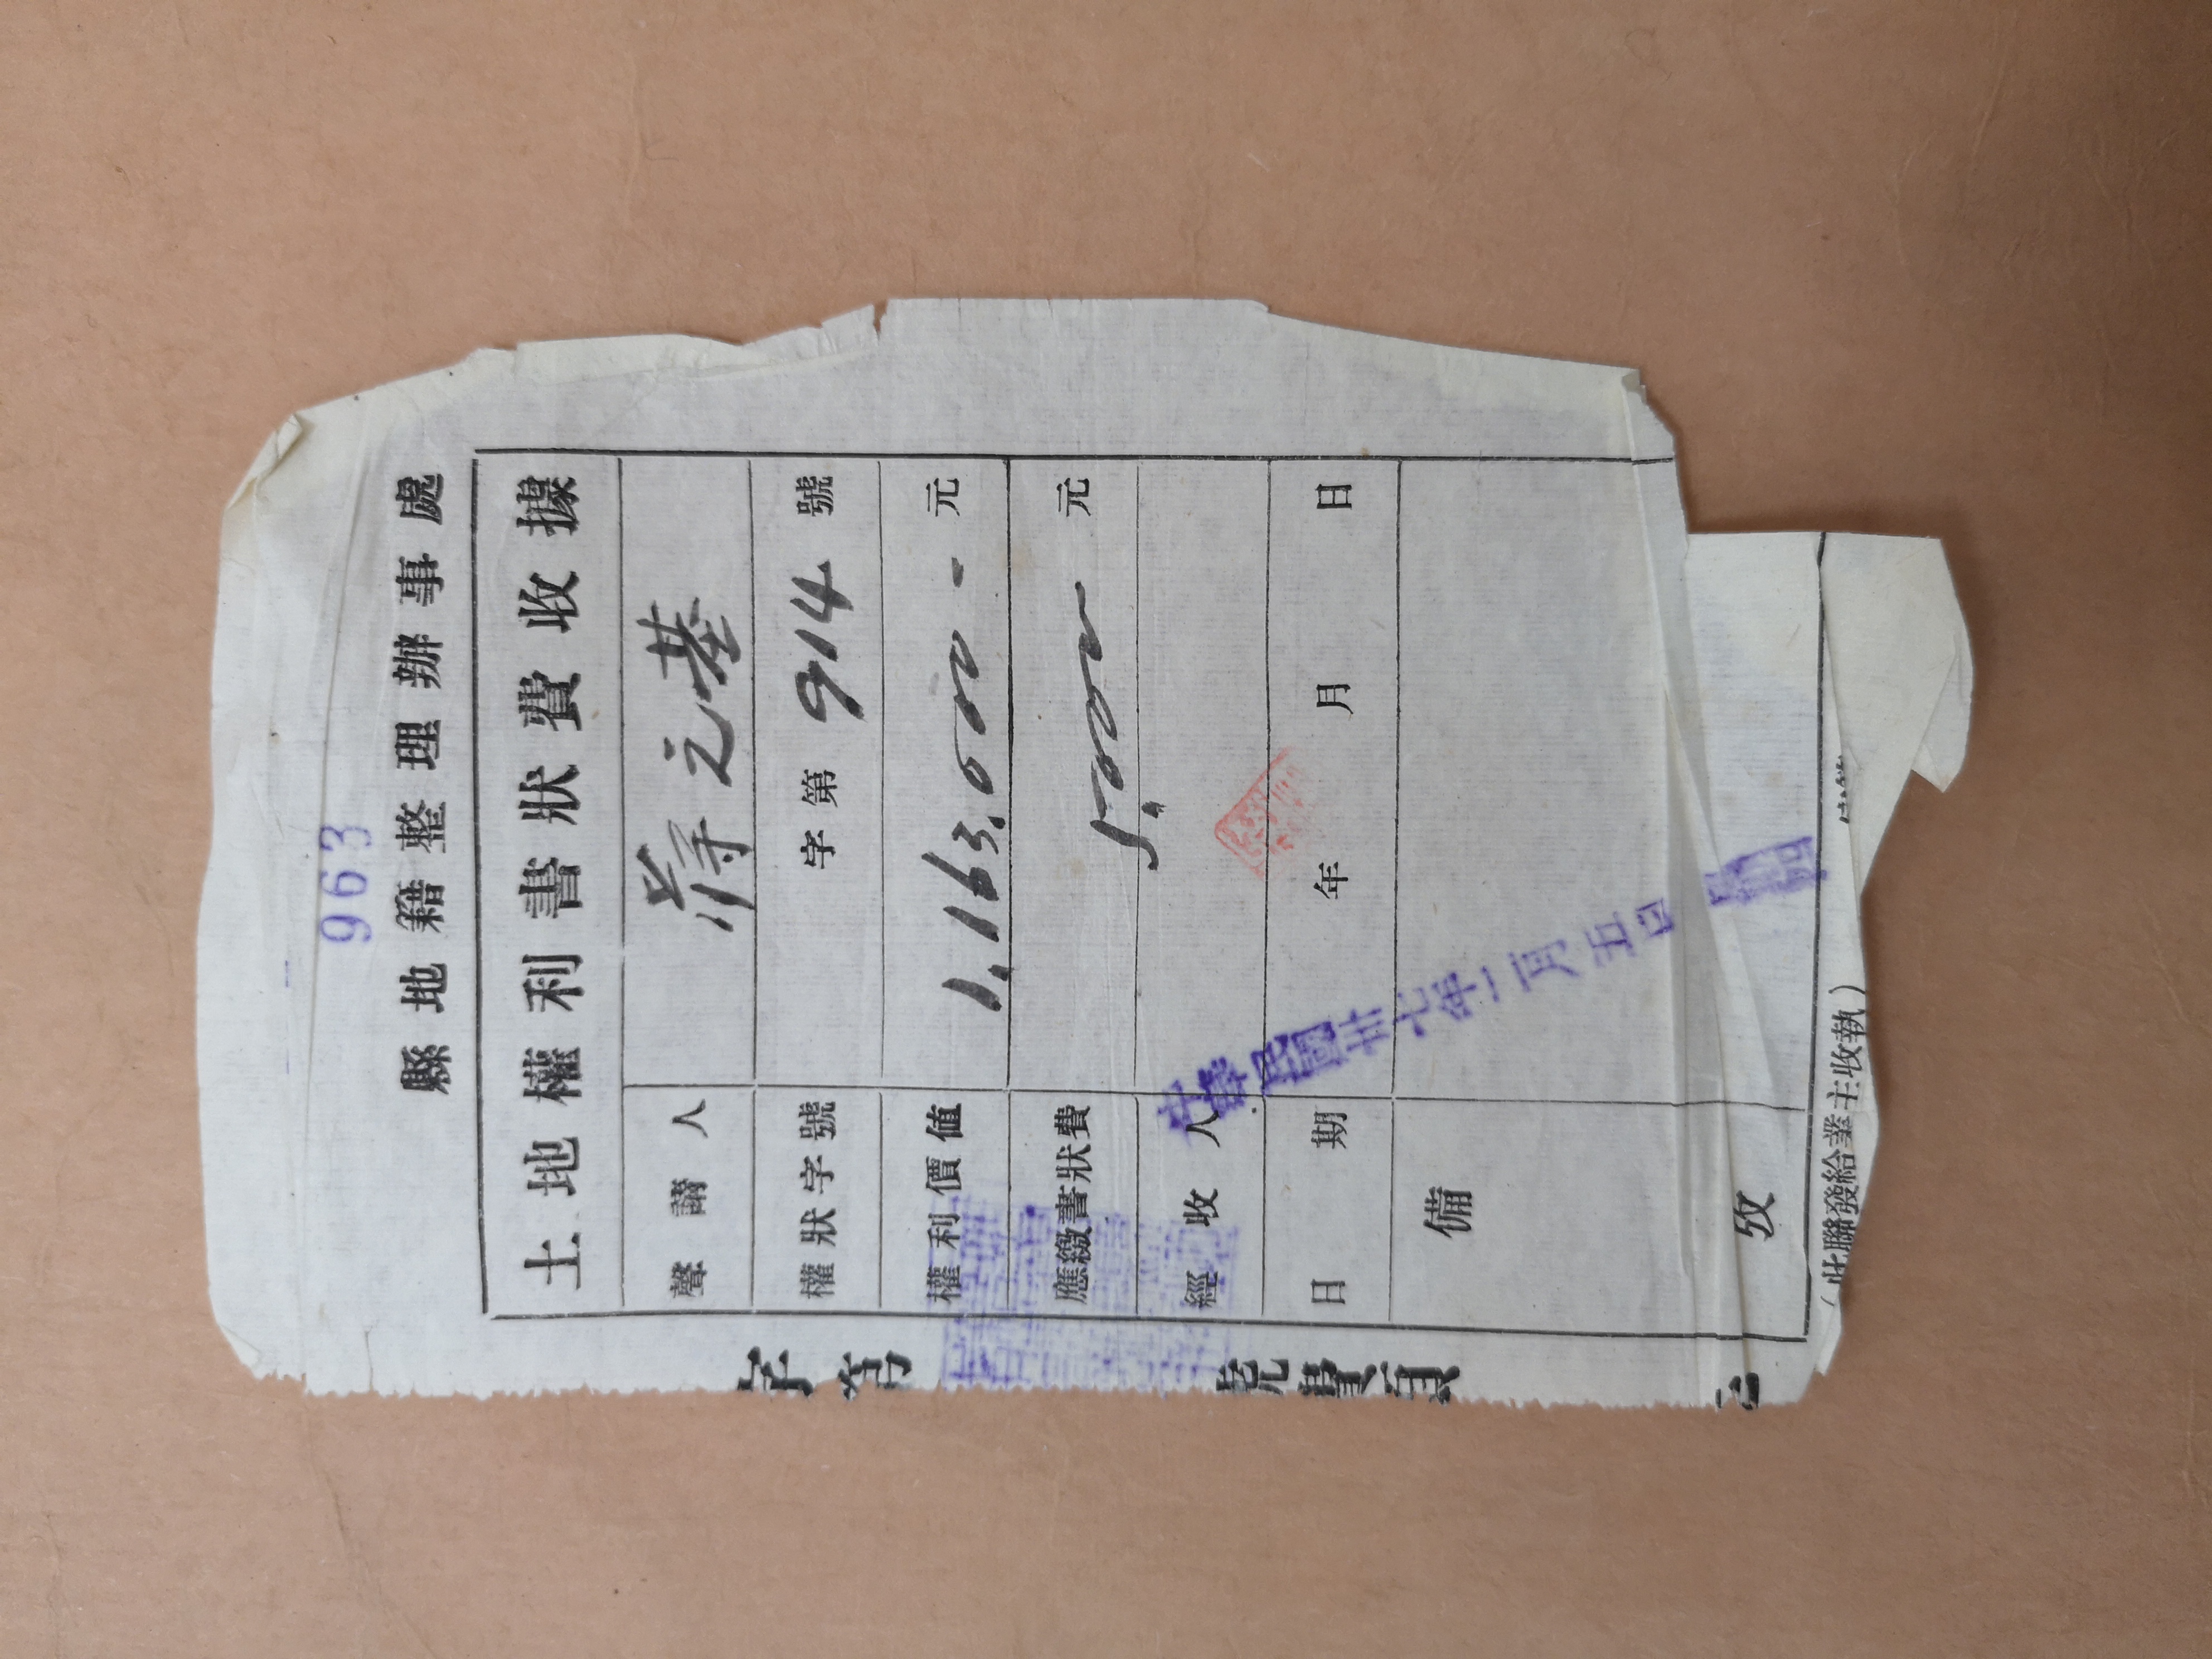 963
縣地籍整理辦事處
土地權利書狀費收據
聲請人 蔣之基
權狀字號 字第914號
權利價值 1,163,000- 元
應繳書狀費 5,000 元
經收人
日期 年月日
中華民國卅七年二月五日
備攷
(此聯發給業主收執)